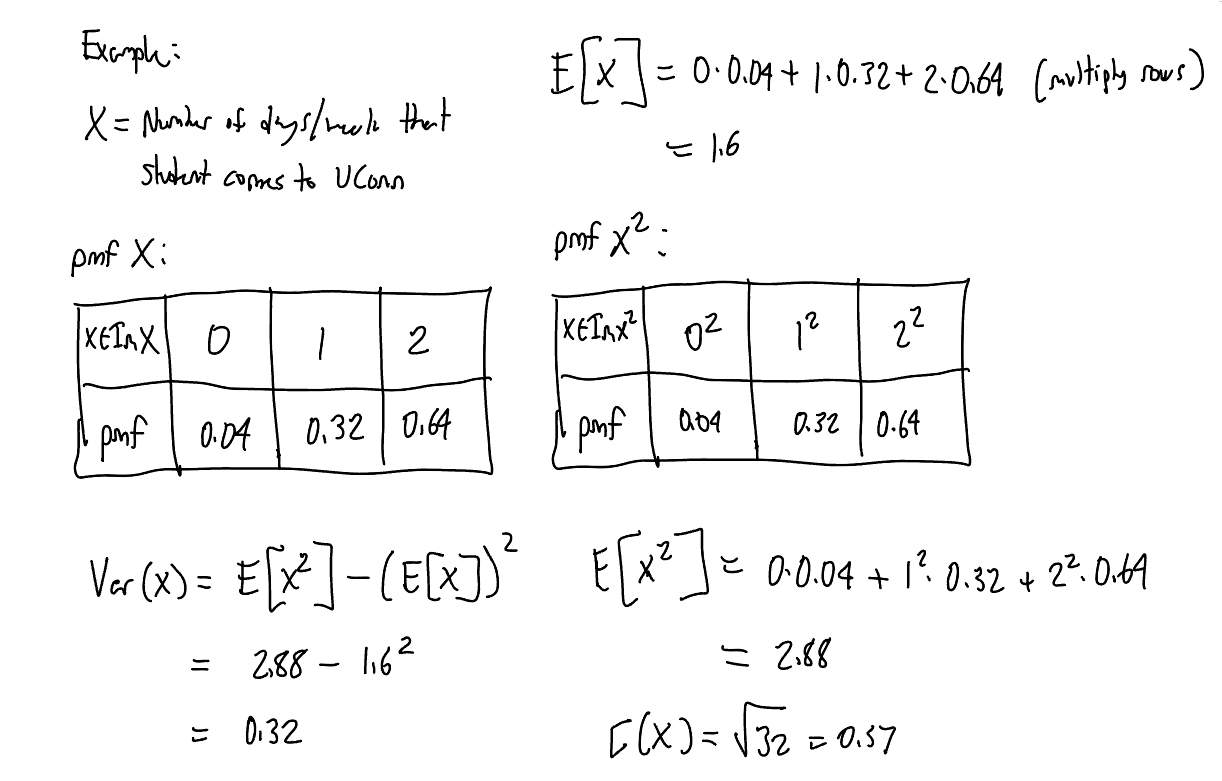 Example:
X = Number of days/week that
student comes to UConn
E[X] = 0·0.04 + 1·0.32 + 2·0.64 (multiply rows)
= 1.6
pmf X:
X∈Im X 0 1 2
pmf 0.04 0.32 0.64
pmf X²:
X∈Im X² 0² 1² 2²
pmf 0.04 0.32 0.64
Var(X) = E[X²] - (E[X])²
= 2.88 - 1.6²
= 0.32
E[X²] = 0·0.04 + 1²·0.32 + 2²·0.64
= 2.88
σ(X) = √32 = 0.57